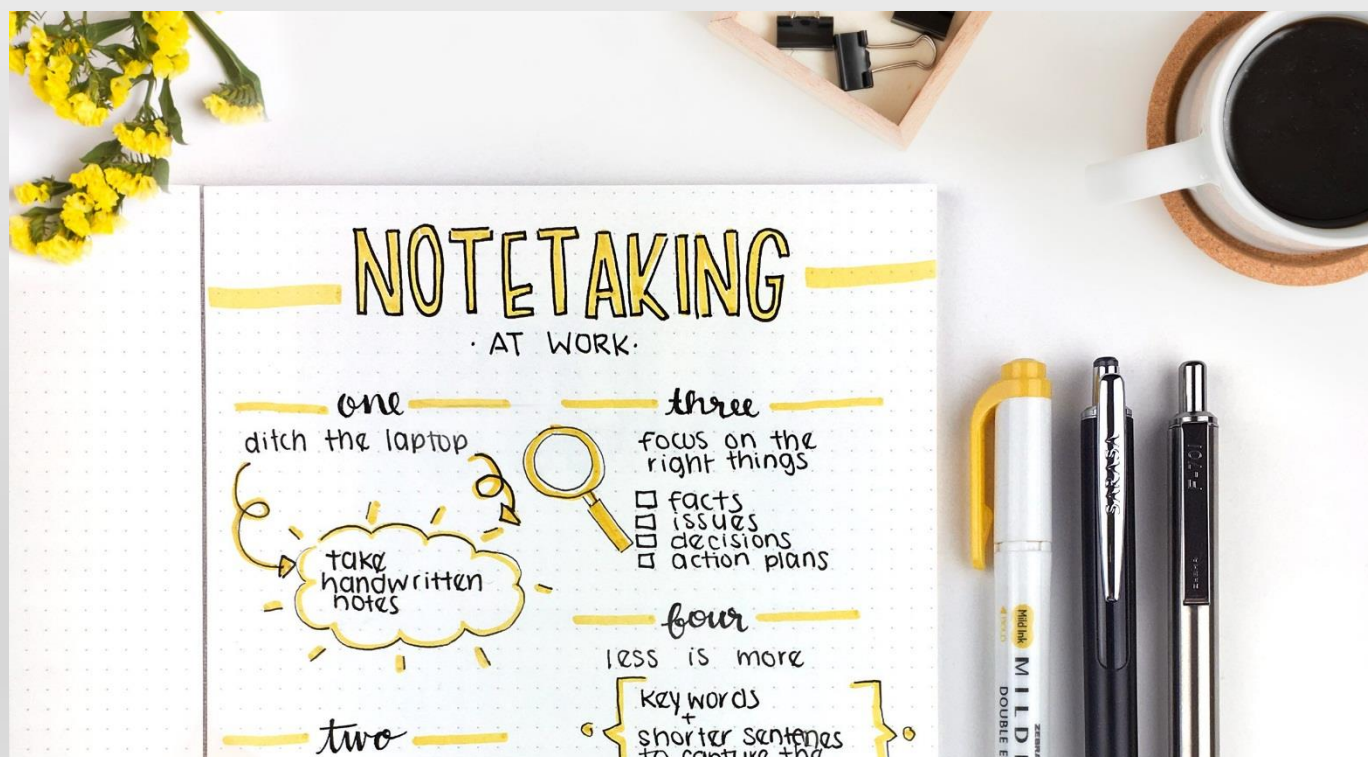 NOTETAKING
· AT WORK·
one
ditch the laptop
take
handwritten
notes
two
three
focus on the
right things
facts
issues
decisions
action plans
four
less is more
key words
+
shorter sentenes
to capture the
SARASA
F-701
ZEBRA
Mild Ink
MILD
DOUBLE E
ZEBRA